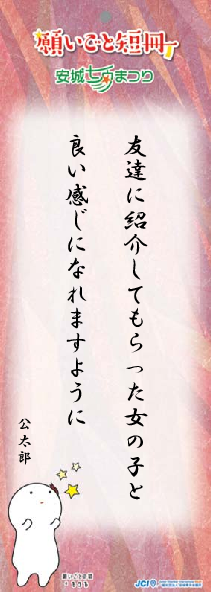 願いごと短冊
安城七夕まつり
友達に紹介してもらった女の子と
良い感じになれますように
公太郎
JCI